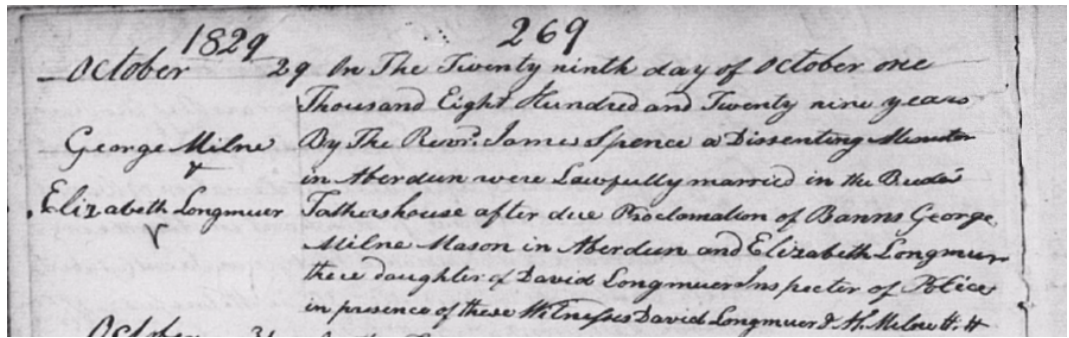 1829 269
October 29 On The Twenty ninth day of October one
Thousand Eight Hundred and Twenty nine years
George Milne By The Revr. James Spence a Dissenting Minister
&
in Aberdeen were Lawfully married in the Brides
Elizabeth Longmuer Fathers house after due Proclamation of Banns George
Milne Mason in Aberdeen and Elizabeth Longmuer
there daughter of David Longmuer Inspecter of Police
in presence of these Witnesses David Longmuer & Al. Milne
October